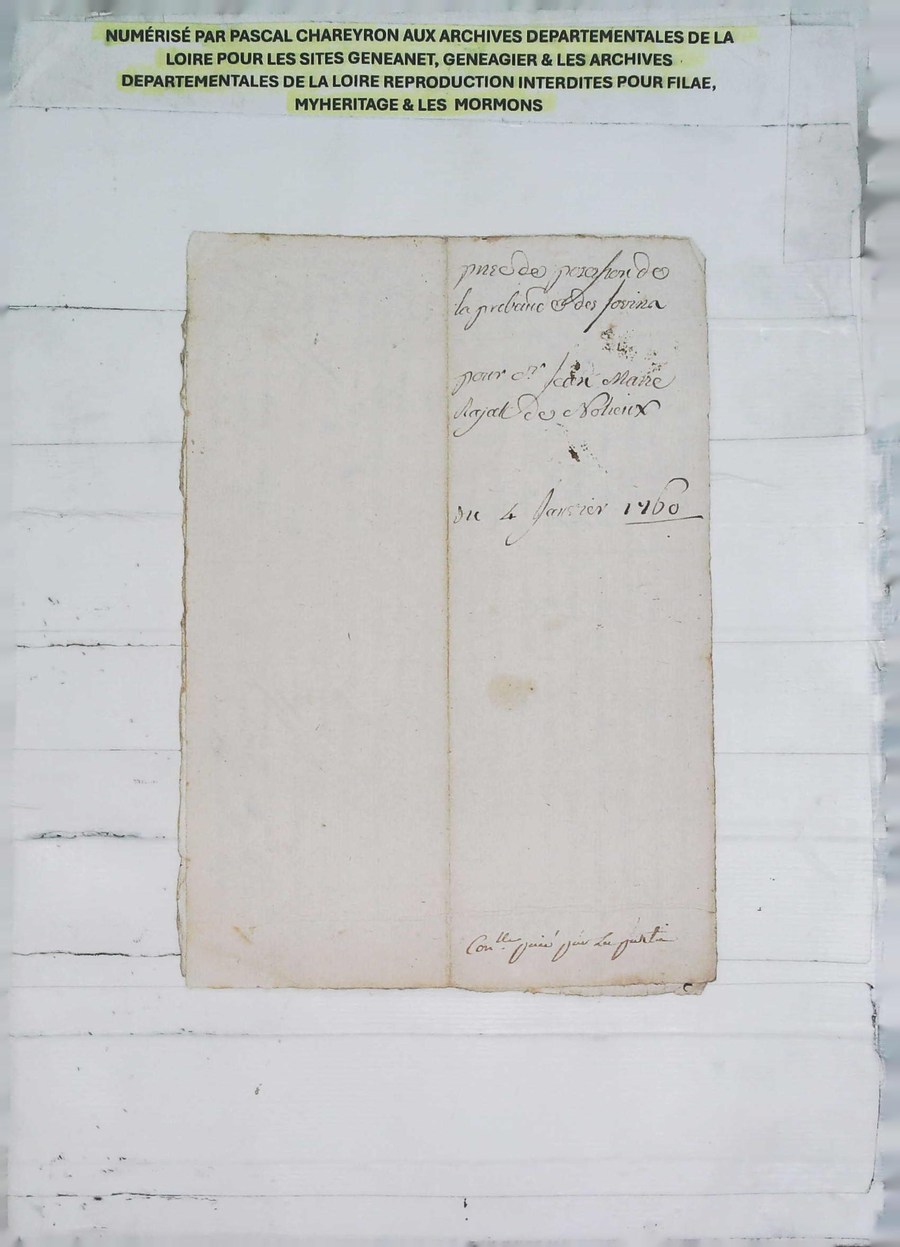 NUMÉRISÉ PAR PASCAL CHAREYRON AUX ARCHIVES DEPARTEMENTALES DE LA
LOIRE POUR LES SITES GENEANET, GENEAGIER & LES ARCHIVES
DEPARTEMENTALES DE LA LOIRE REPRODUCTION INTERDITES POUR FILAE,
MYHERITAGE & LES MORMONS
prise de possession de
la prebande des
pour Sr Jean Marie
de
du 4 Janvier 1760
par La partie